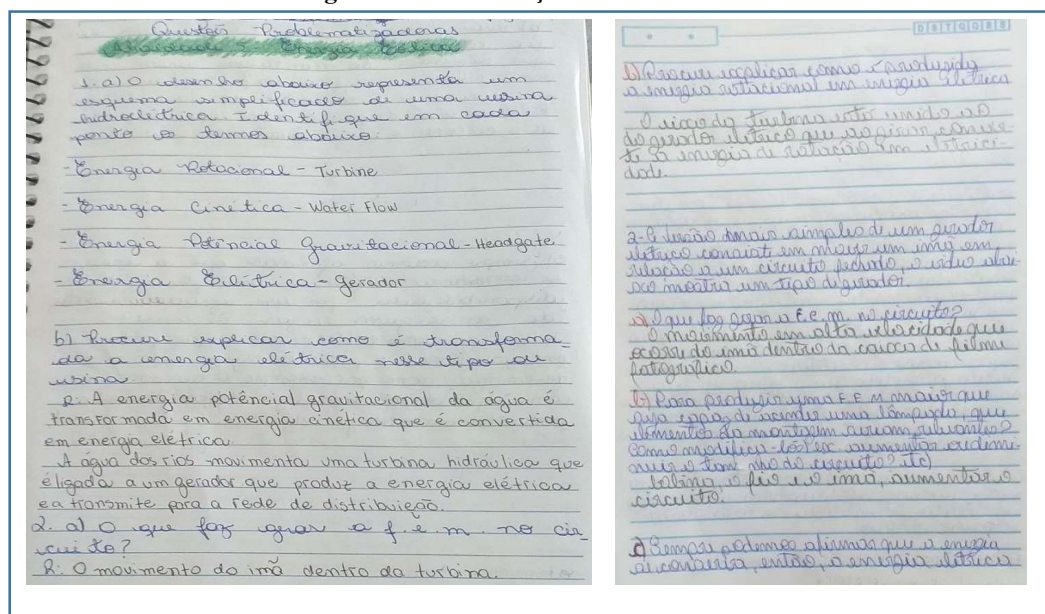 Questões Problematizadoras
Atividade 5 Energia Eólica
1. a) O desenho abaixo representa um
esquema simplificado de uma usina
hidroelétrica Identifique em cada
ponto os termos abaixo:
- Energia Rotacional - Turbine
- Energia Cinética - Water Flow
- Energia Potencial Gravitacional - Headgate
- Energia Elétrica - Gerador
b) Procure explicar como é transforma-
da a energia elétrica nesse tipo de
usina.
R: A energia potêncial gravitacional da água é
transformada em energia cinética que é convertida
em energia elétrica.
A água dos rios movimenta uma turbina hidráulica que
é ligada a um gerador que produz a energia elétrica
e a transmite para a rede de distribuição.
2. a) O que faz gerar a f.e.m. no cir-
cuito?
R: O movimento do imã dentro da turbina.
D S T Q Q S S
b) Procure explicar como é produzida
a energia rotacional em energia elétrica
O eixo da turbina está unido ao
do gerador elétrico que ao girar conver-
te a energia de rotação em eletrici-
dade.
2- A versão mais simples de um gerador
elétrico consiste em mover um imã em
relação a um circuito fechado, o vídeo aba-
ixo mostra um tipo de gerador.
a) O que faz gerar a F.e.m. no circuito?
O movimento em alta velocidade que
ocorre do imã dentro da caixa de filme
fotográfico.
b) Para produzir uma F.E.M maior que
seja capaz de acender uma lâmpada, que
elementos da montagem seriam relevantes?
Como modificá-los? ex: aumentar ou dimi-
nuir o tamanho do circuito? etc)
bobina, o fio e o imã, aumentar o
circuito.
c) Sempre podemos afirmar que a energia
se conserva, então, a energia elétrica